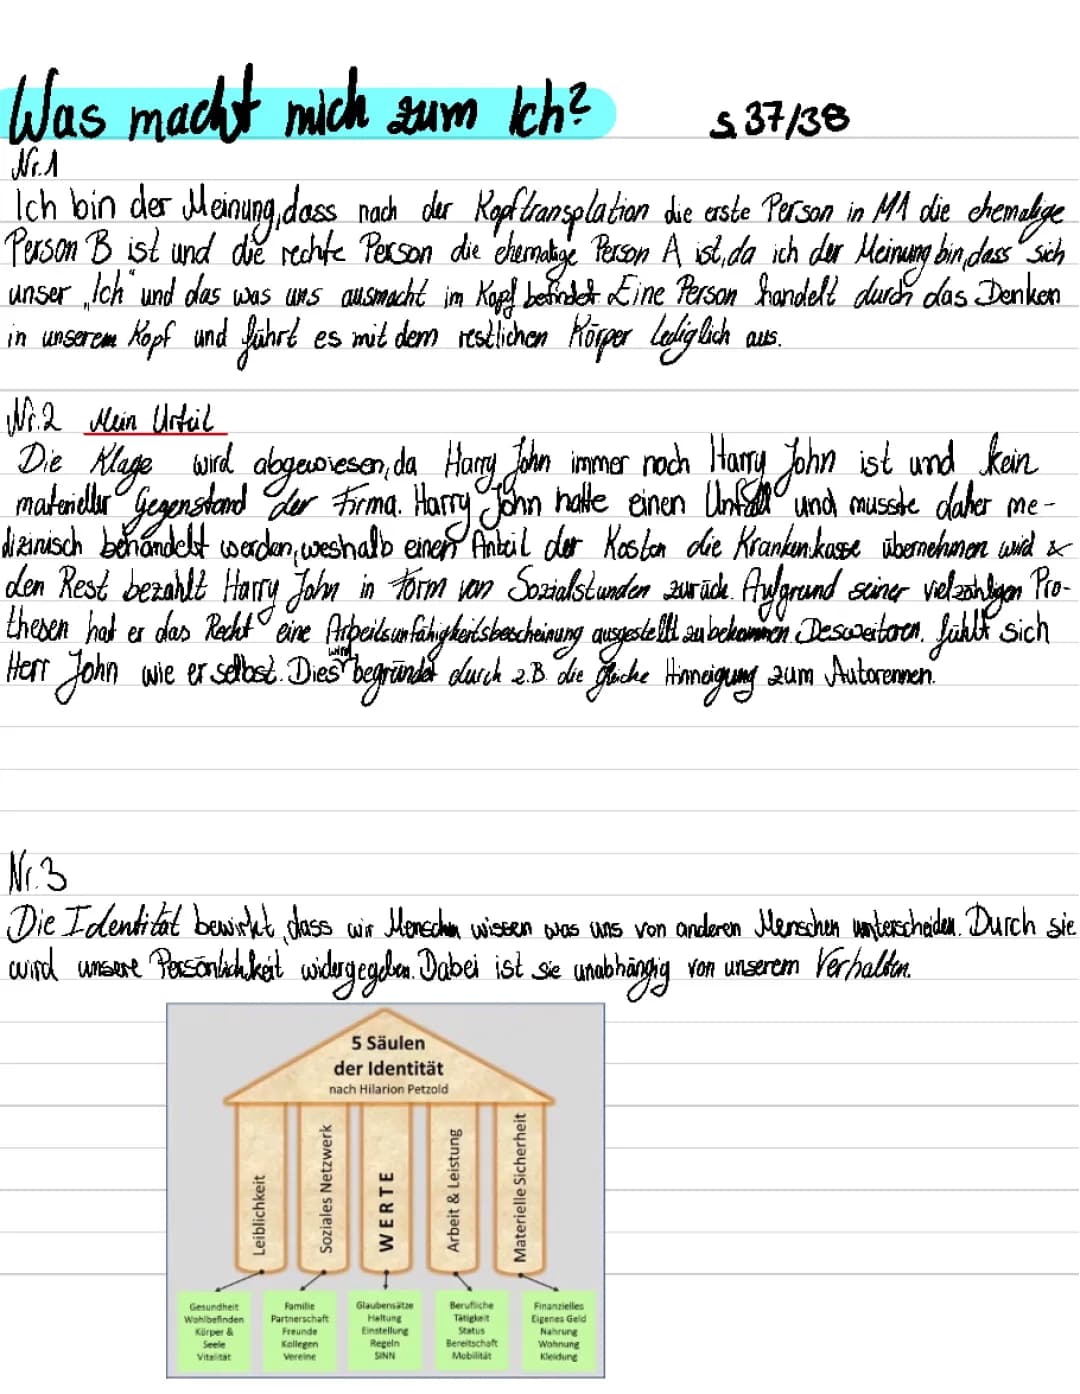 Was macht mich zum Ich? S.37/38
Nr.1
Ich bin der Meinung, dass nach der Kopftransplation die erste Person in M1 die ehemalige
Person B ist und die rechte Person die ehemalige Person A ist, da ich der Meinung bin, dass sich
unser „Ich" und das was uns ausmacht im Kopf befindet. Eine Person handelt durch das Denken
in unserem Kopf und führt es mit dem restlichen Körper lediglich aus.
Nr.2 Mein Urteil
Die Klage wird abgewiesen, da Harry John immer noch Harry John ist und kein
materieller Gegenstand der Firma. Harry John hatte einen Unfall und musste daher me-
dizinisch behandelt werden, weshalb einen Anteil der Kosten die Krankenkasse übernehmen wird &
den Rest bezahlt Harry John in Form von Sozialstunden zurück. Aufgrund seiner vielzahligen Pro-
thesen hat er das Recht eine Arbeitsunfähigkeitsbescheinung ausgestellt zu bekommen. Desweiteren, fühlt sich
Herr John wie er selbst. Dies wird begründet durch z.B. die gleiche Hinneigung zum Autorennen.
Nr.3
Die Identität bewirkt, dass wir Menschen wissen was uns von anderen Menschen unterscheiden. Durch sie
wird unsere Persönlichkeit widergegeben. Dabei ist sie unabhängig von unserem Verhalten.
5 Säulen
der Identität
nach Hilarion Petzold
Leiblichkeit
Soziales Netzwerk
WERTE
Arbeit & Leistung
Materielle Sicherheit
Gesundheit
Wohlbefinden
Körper &
Seele
Vitalität
Familie
Partnerschaft
Freunde
Kollegen
Vereine
Glaubensätze
Haltung
Einstellung
Regeln
SINN
Berufliche
Tätigkeit
Status
Bereitschaft
Mobilität
Finanzielles
Eigenes Geld
Nahrung
Wohnung
Kleidung